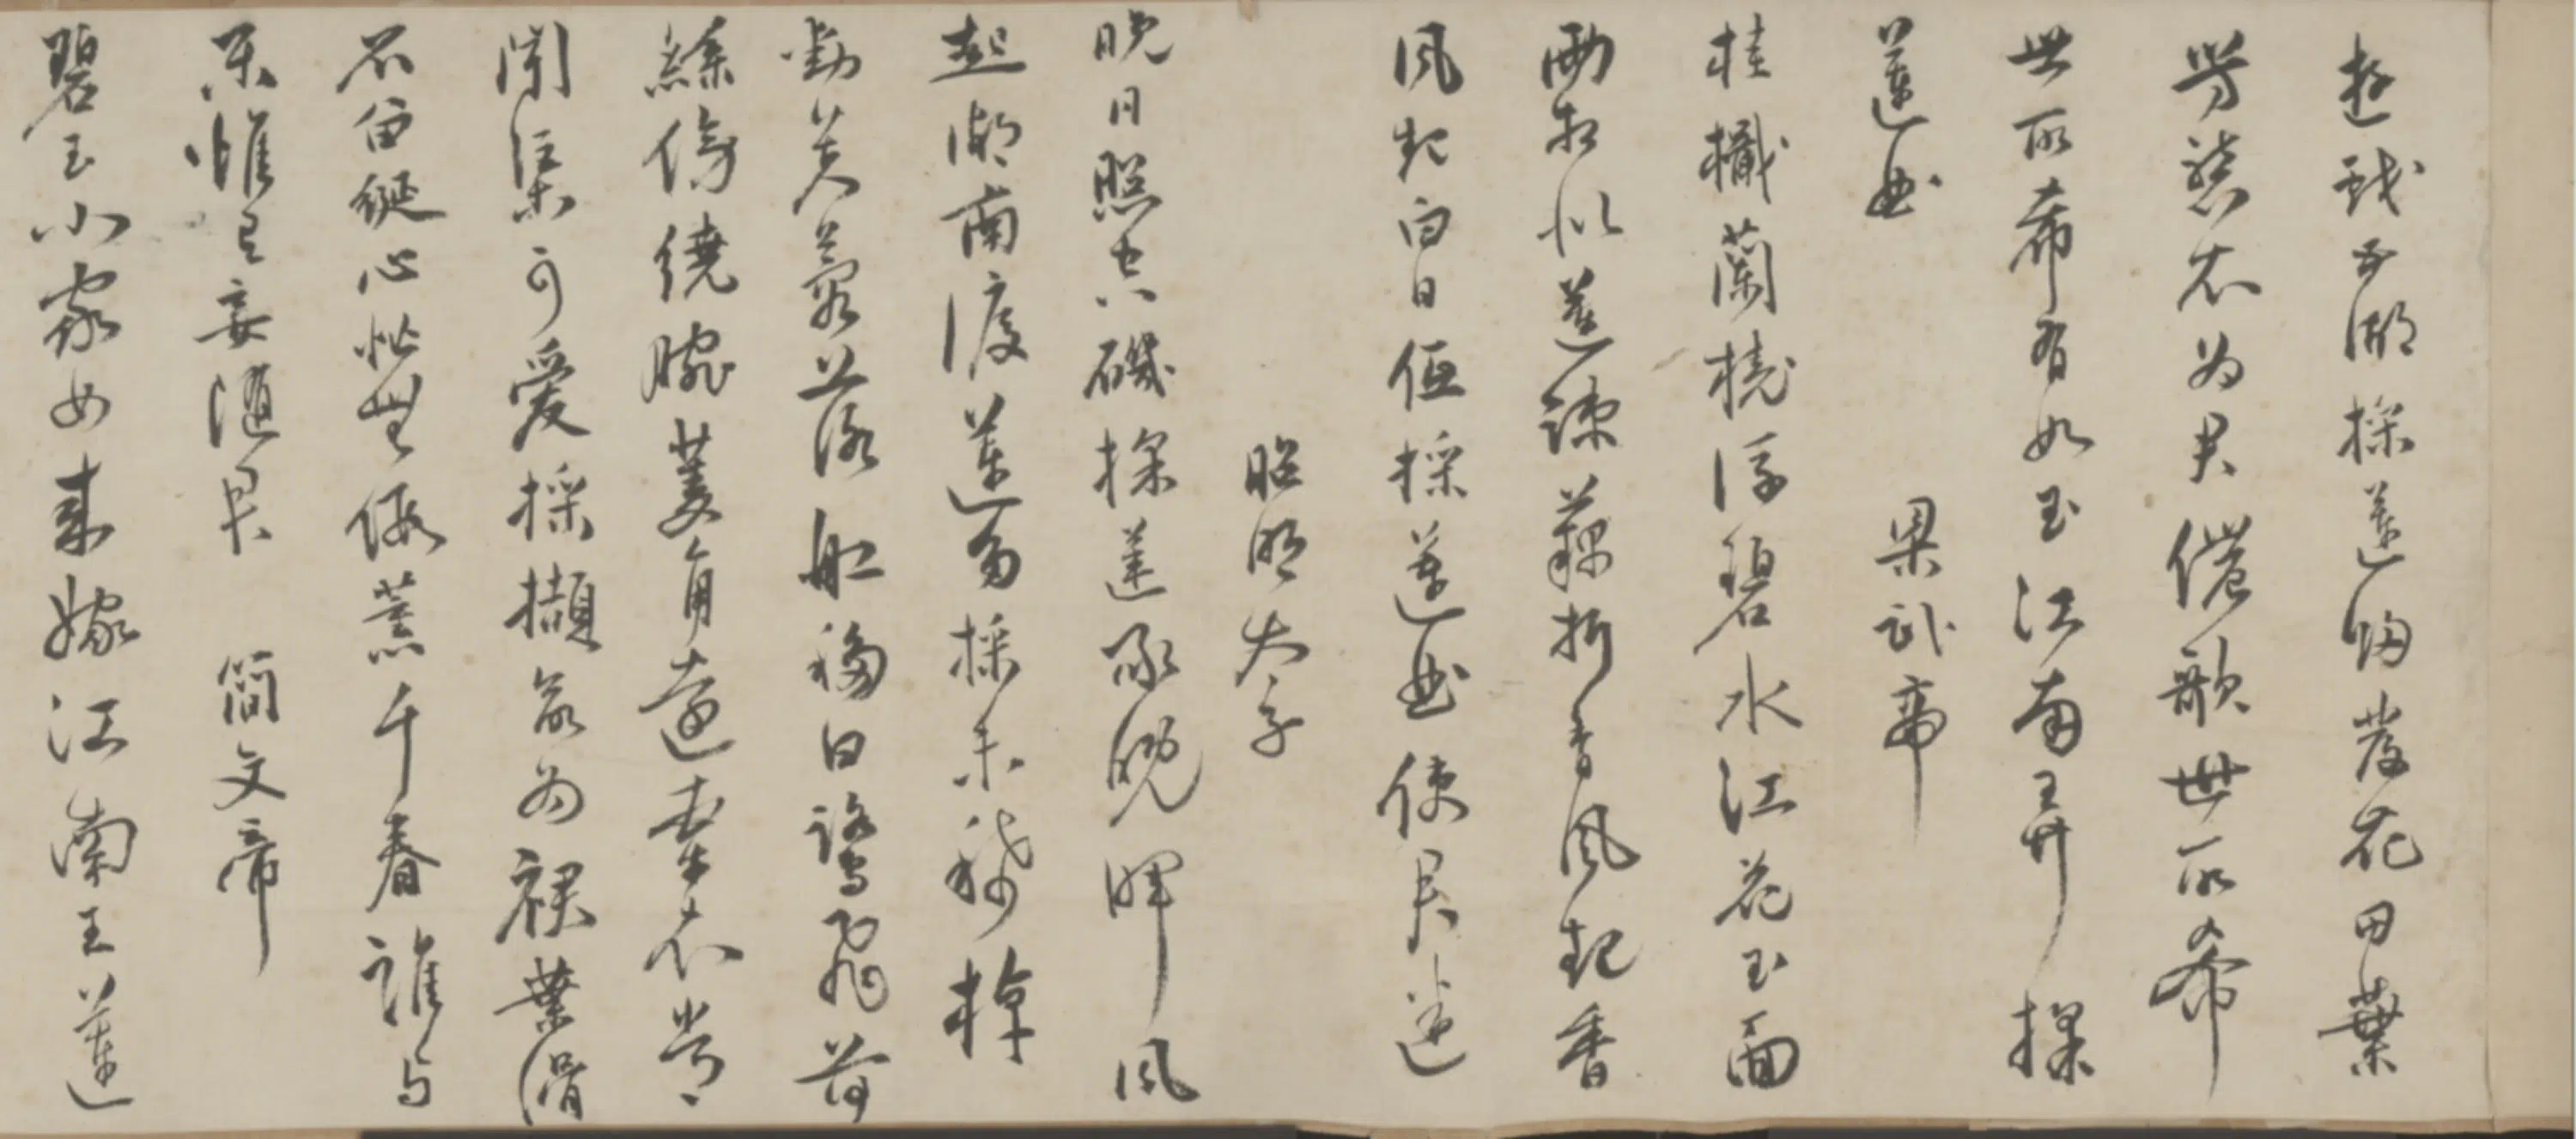 遊戲五湖採蓮歸發花田葉
芳襲衣為君儂歌世所希
世所希有如玉江南弄採
蓮曲 梁武帝
桂檝蘭橈浮碧水江花玉面
兩相似蓮疎藕折香風起香
風起白日低採蓮曲使君迷
昭明太子
晚日照空磯採蓮承晚暉風
起湖南渡蓮多採未稀棹
動芙蓉落船移白鷺飛荷
絲傍繞腕菱角遠牽衣常
聞渠可愛採擷欲為裙葉滑
不留綖心忙無假薰千春誰與
樂惟有妾隨君 簡文帝
碧玉小家女來嫁江南王蓮